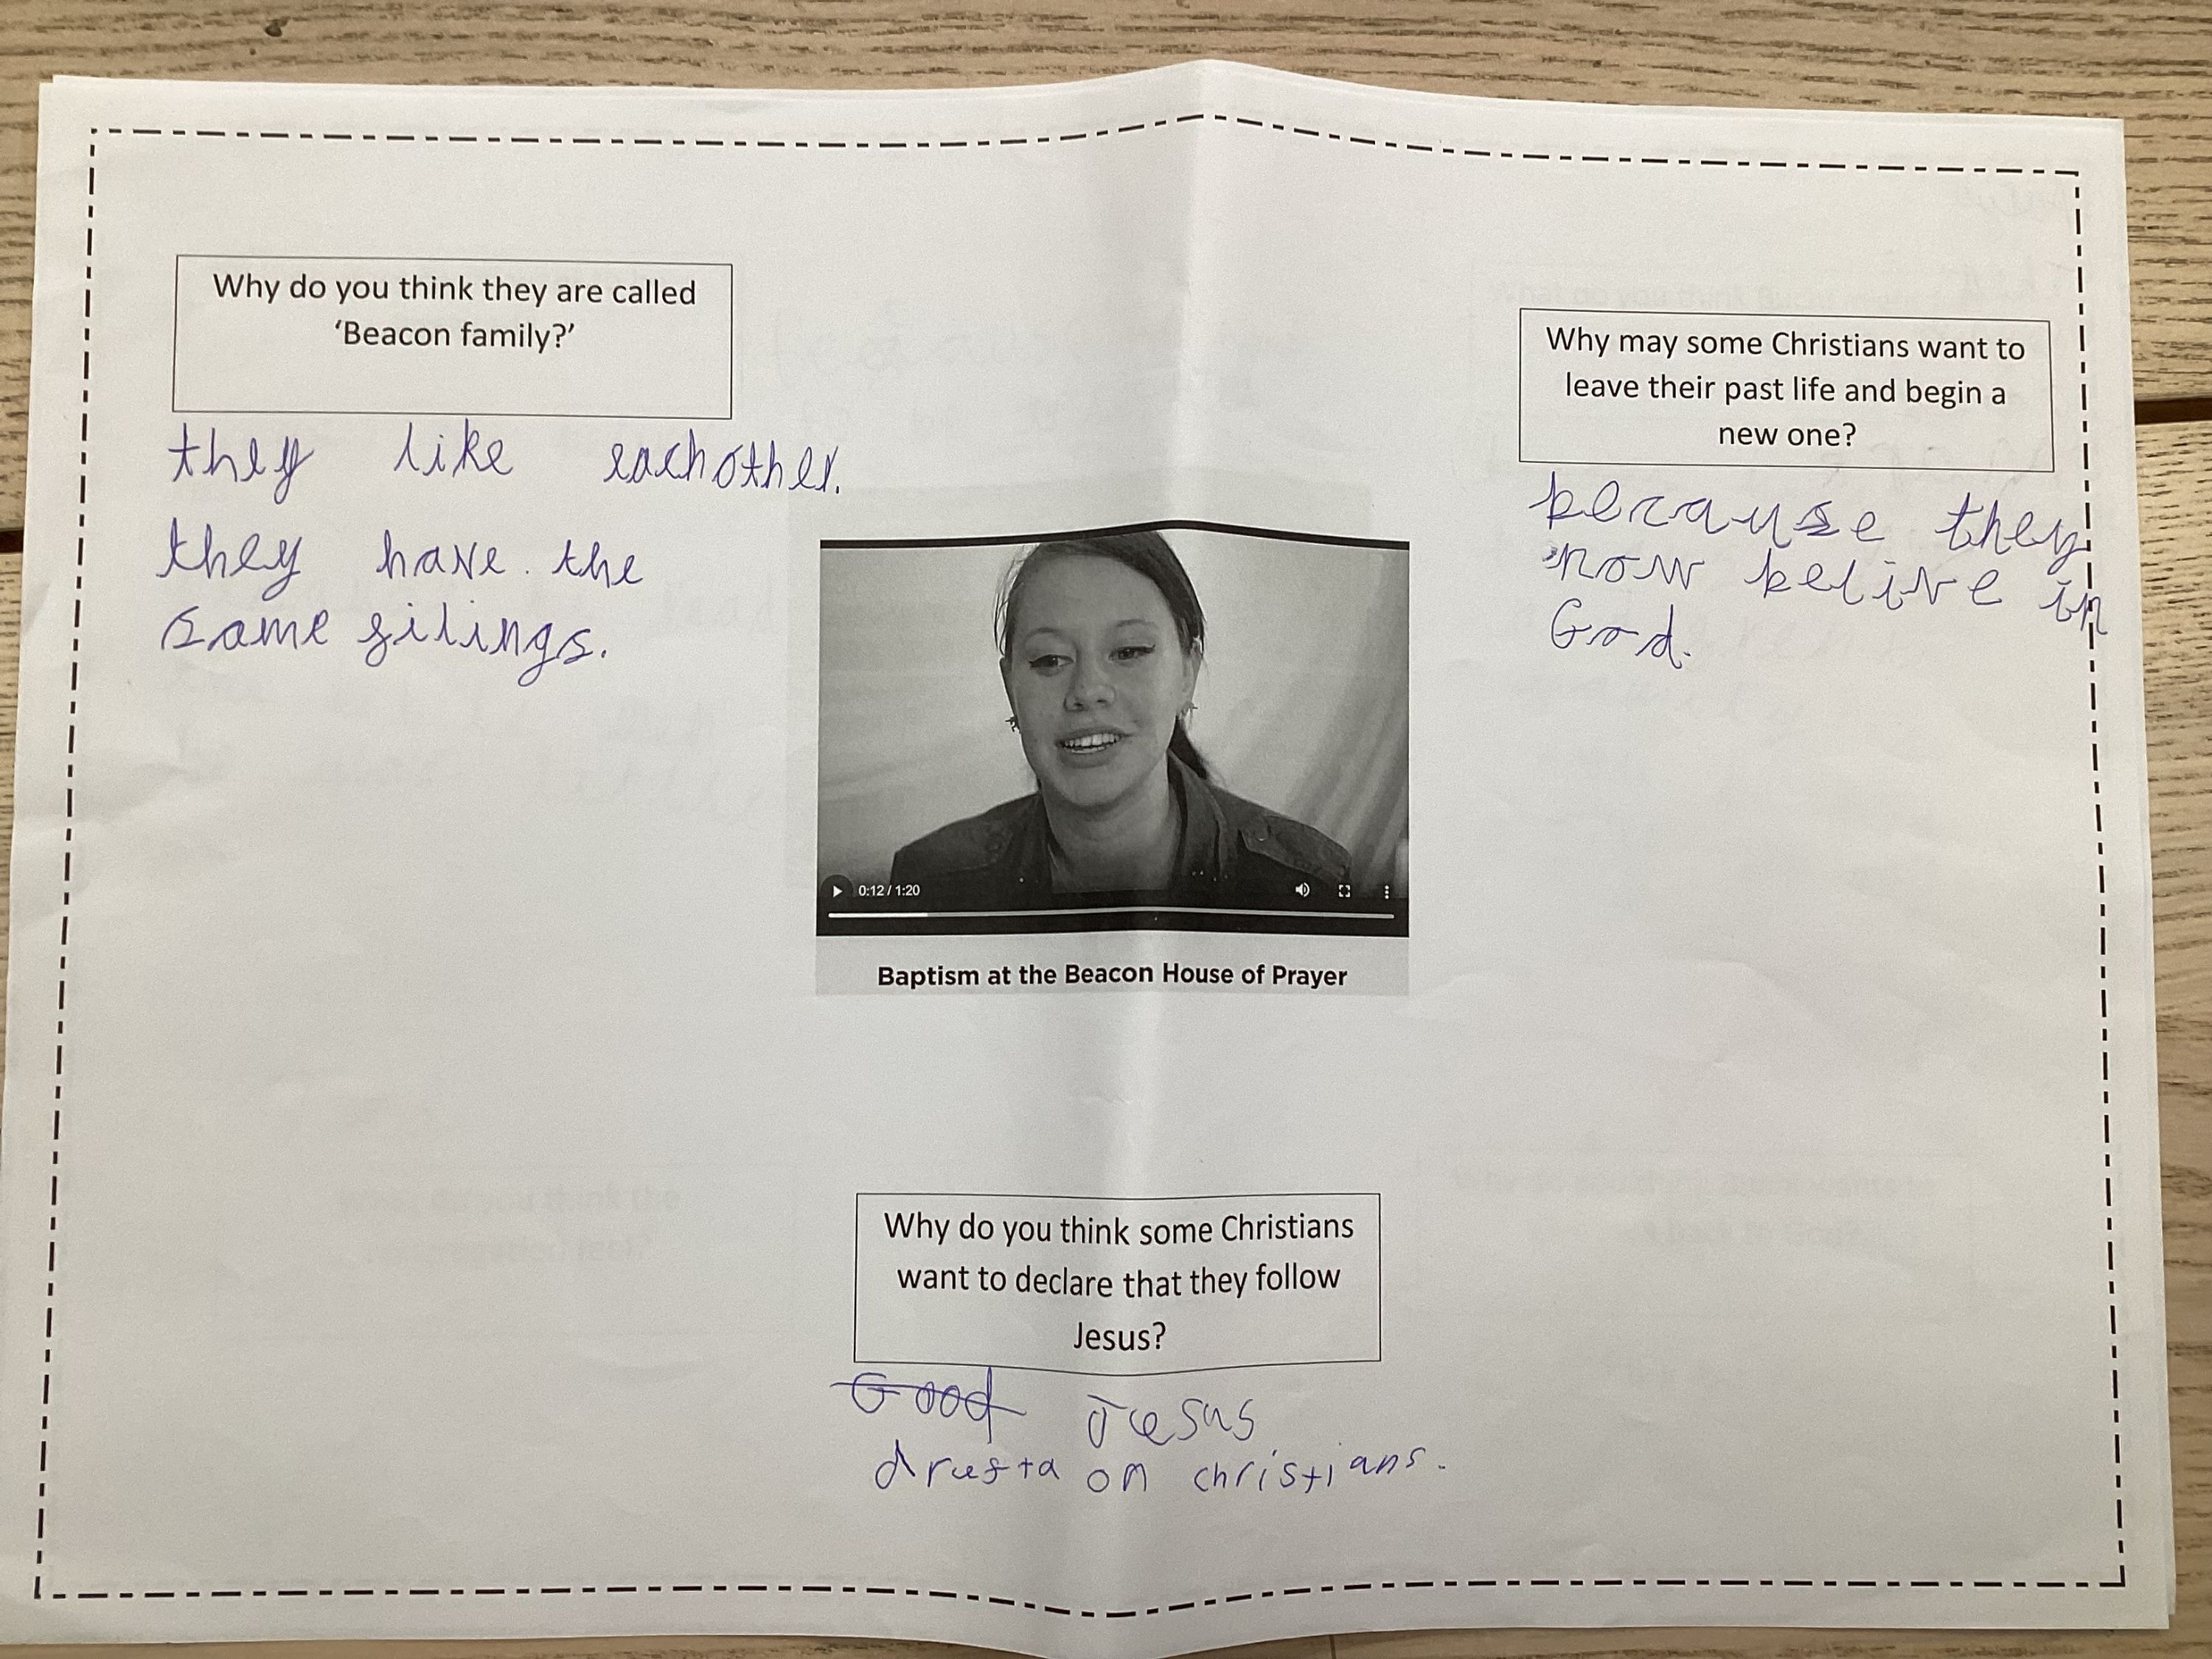 Why do you think they are called
‘Beacon family?’
they like eachother.
they have the
same filings.
Why may some Christians want to
leave their past life and begin a
new one?
because they
now belive in
God.
0:12 / 1:20
Baptism at the Beacon House of Prayer
Why do you think some Christians
want to declare that they follow
Jesus?
Good Jesus
on christians.